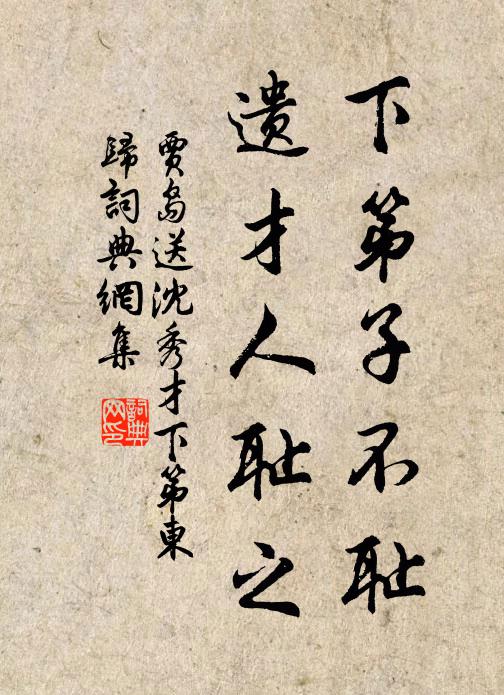 下第子不耻
遺才人耻之
賈島送沈秀才下第東
歸詞典網集
詞典
网印